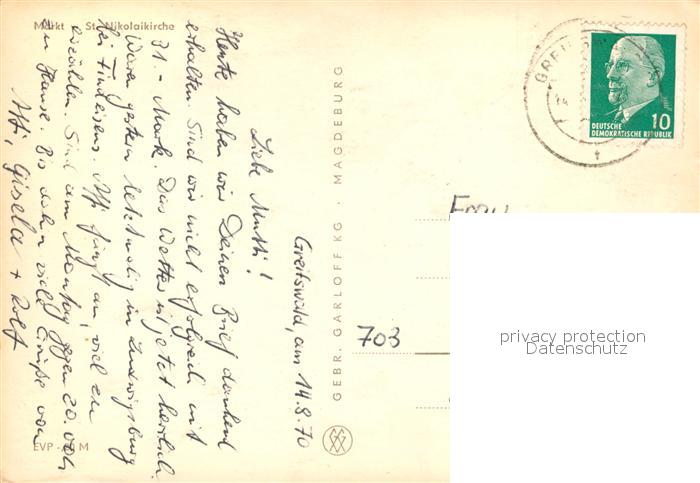 Markt St. Nikolaikirche
Greifswald, am 14.8.70
Liebe Mutti!
Heute haben wir Deinen Brief dankend
erhalten. Sind wir nicht erfolgreich mit
31.- Mark. Das Wetter ist jetzt herrlich.
Waren gestern letztmalig in Ludwigsburg
bei Findeisens. Affi fängt an, viel zu
erzählen. Sind am Montag gegen 20.00h
zu Hause. Bis dahin viel Grüße von
Affi, Gisela + Rolf
EVP M
GEBR. GARLOFF KG · MAGDEBURG
GREIFS
DEUTSCHE
DEMOKRATISCHE REPUBLIK
10
Frau
703
privacy protection
Datenschutz